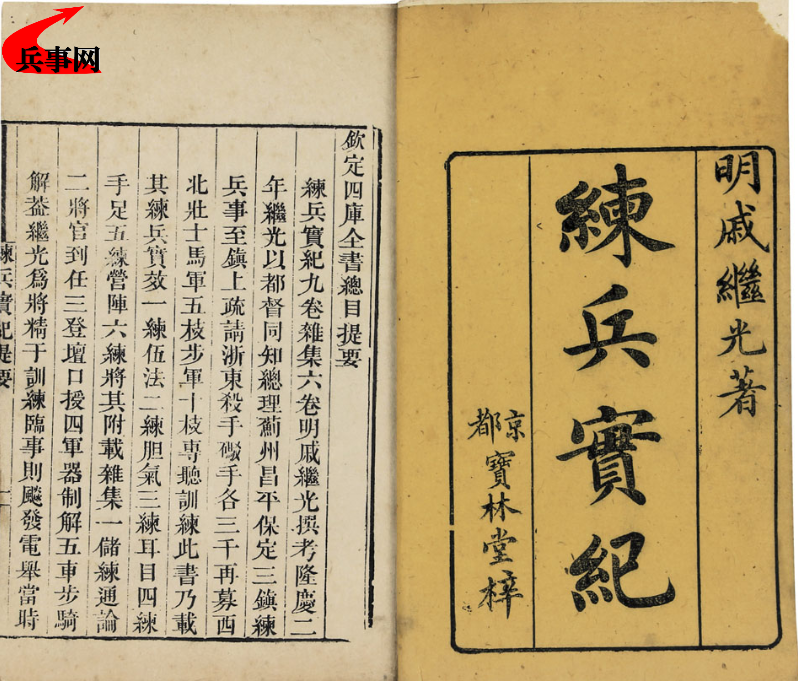 兵事网
明戚繼光著
練兵實紀
京都寶林堂梓
欽定四庫全書總目提要
練兵實紀九卷雜集六卷明戚繼光撰考隆慶二
年繼光以都督同知總理薊州昌平保定三鎮練
兵事至鎮上疏請浙東殺手礮手各三千再募西
北壯士馬軍五枝步軍十枝專聽訓練此書乃載
其練兵實效一練伍法二練胆氣三練耳目四練
手足五練營陣六練將其附載雜集一儲練通論
二將官到任三登壇口授四軍器制解五車步騎
解葢繼光爲將精于訓練臨事則飈發電舉當時
練兵實紀提要
一